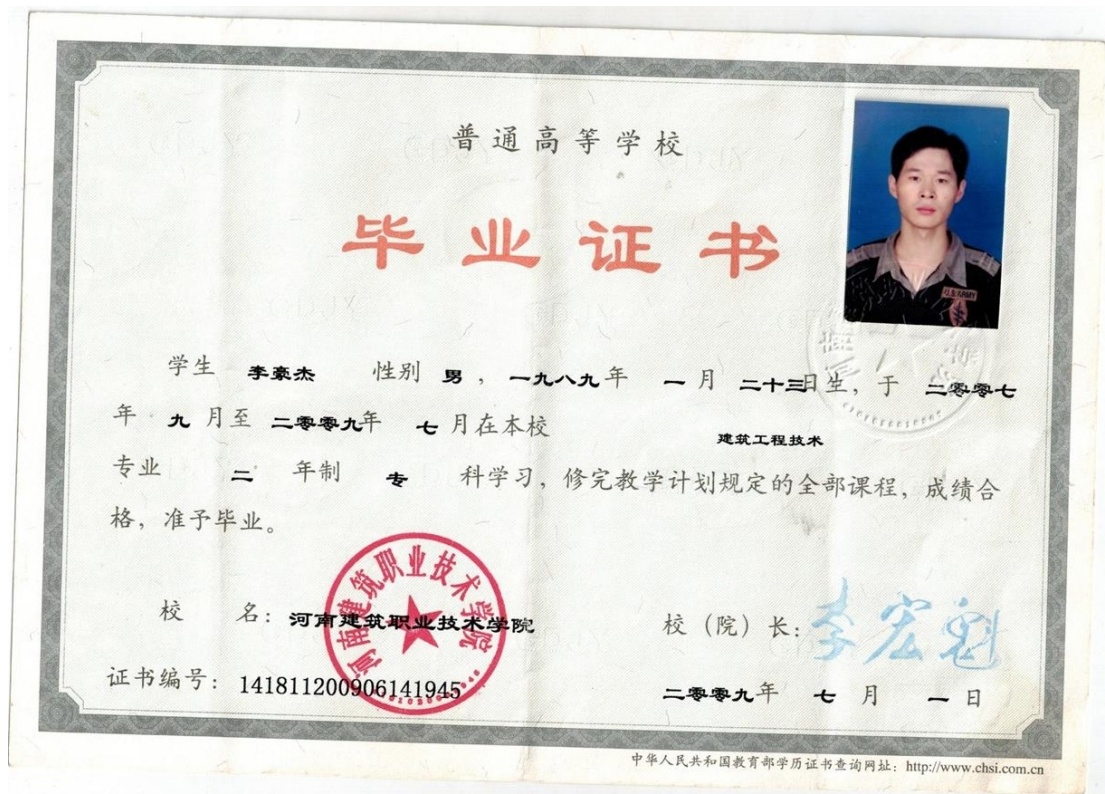 普通高等学校
毕业证书
U.S.ARMY
学生 李豪杰 性别 男 ，一九八九年 一月 二十三日生，于 二零零七
年 九 月至 二零零九年 七 月在本校 建筑工程技术
专业 二 年制 专 科学习，修完教学计划规定的全部课程，成绩合
格，准予毕业。
河南建筑职业技术学院
校 名：河南建筑职业技术学院
校（院）长：李宏魁
证书编号：141811200906141945
二零零九年 七 月 一 日
中华人民共和国教育部学历证书查询网址：http://www.chsi.com.cn